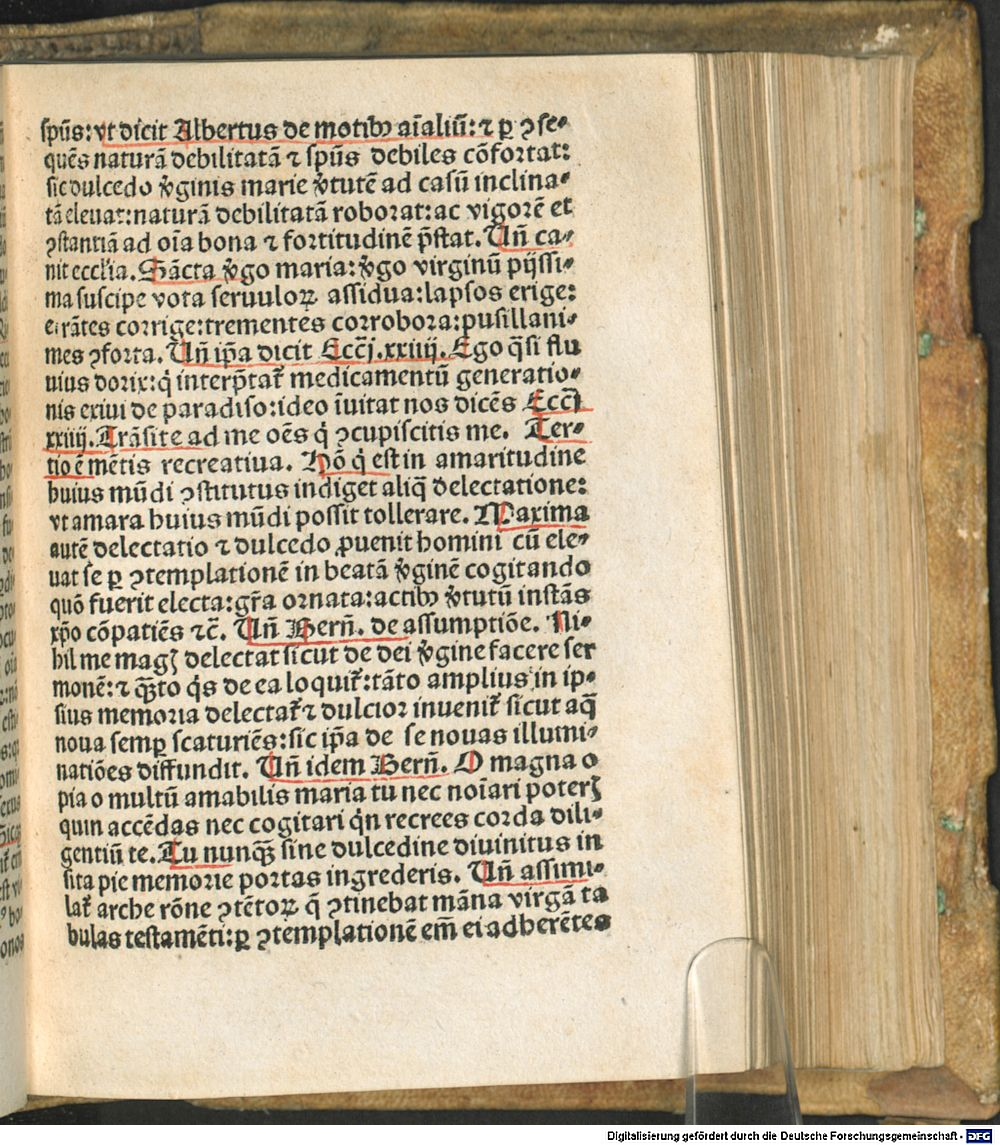 spūs: vt dicit Albertus de motibꝰ aīaliū: ⁊ ꝑ ꝯse⸗
quēs naturā debilitatā ⁊ spūs debiles cōfortat:
sic dulcedo v̓ginis marie v̓tutē ad casū inclina⸗
tā eleuat: naturā debilitatā roborat: ac vigorē et
ꝯstantiā ad oīa bona ⁊ fortitudinē p̄stat. Un̄ ca⸗
nit eccl̓ia. Sācta v̓go maria: v̓go virginū pijssi⸗
ma suscipe vota seruuloꝝ assidua: lapsos erige:
errātes corrige: trementes corrobora: pusillani⸗
mes ꝯforta. Un̄ ip̄a dicit Ecc̄i. xxiiij. Ego q̄si flu
uius dorix: q̇ interp̄tat᷑ medicamentū generatio⸗
nis exiui de paradiso: ideo īuitat nos dicēs Ecc̄i
xxiiij. Trāsite ad me oēs q̇ ꝯcupiscitis me. Ter⸗
tio ē mētis recreatiua. Hō q̇ est in amaritudine
huius mūdi ꝯstitutus indiget aliq̄ delectatione:
vt amara huius mūdi possit tollerare. Maxima
autē delectatio ⁊ dulcedo ꝓuenit homini cū ele⸗
uat se ꝑ ꝯtemplationē in beatā v̓ginē cogitando
quō fuerit electa: gr̄a ornata: actibꝰ v̓tutū instās
xp̄o cōpatiēs ⁊c̄. Un̄ Bern̄. de assumptiōe. Ni⸗
hil me magꝭ delectat sicut de dei v̓gine facere ser
monē: ⁊ q̄ꝫto q̇s de ea loquit᷑: tāto amplius in ip⸗
sius memoria delectat᷑ ⁊ dulcior inuenit᷑ sicut aq̄
noua semꝑ scaturiēs: sic ip̄a de se nouas illumi⸗
natiōes diffundit. Un̄ idem Bern̄. O magna o
pia o multū amabilis maria tu nec noīari poterꝭ
quin accēdas nec cogitari q̇n recrees corda dili⸗
gentiū te. Tu nunq̄ꝫ sine dulcedine diuinitus in
sita pie memorie portas ingrederis. Un̄ assimi⸗
lat᷑ arche rōne ꝯtētoꝝ q̄ ꝯtinebat māna virgā ta
bulas testamēti: ꝑ ꝯtemplationē em̄ ei adherētes
Digitalisierung gefördert durch die Deutsche Forschungsgemeinschaft - DFG